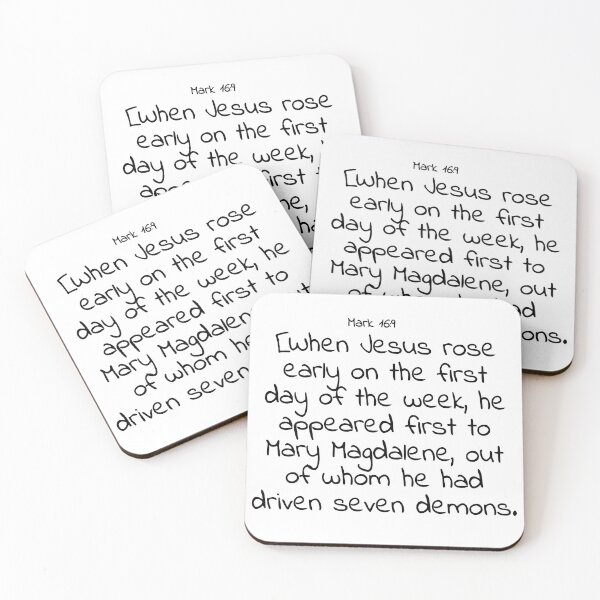 Mark 16:9
[When Jesus rose
early on the first
day of the week,
first
Mark 16:9
[When Jesus rose
early on the first
day of the week, he
appeared first to
Mary Magdalene, out
of whom he had
Mark 16:9
[When Jesus rose
early on the first
day of the week, he
appeared first to
Mary Magdalene, out
of whom he
driven seven
Mark 16:9
[When Jesus rose
early on the first
day of the week, he
appeared first to
Mary Magdalene, out
of whom he had
driven seven demons.